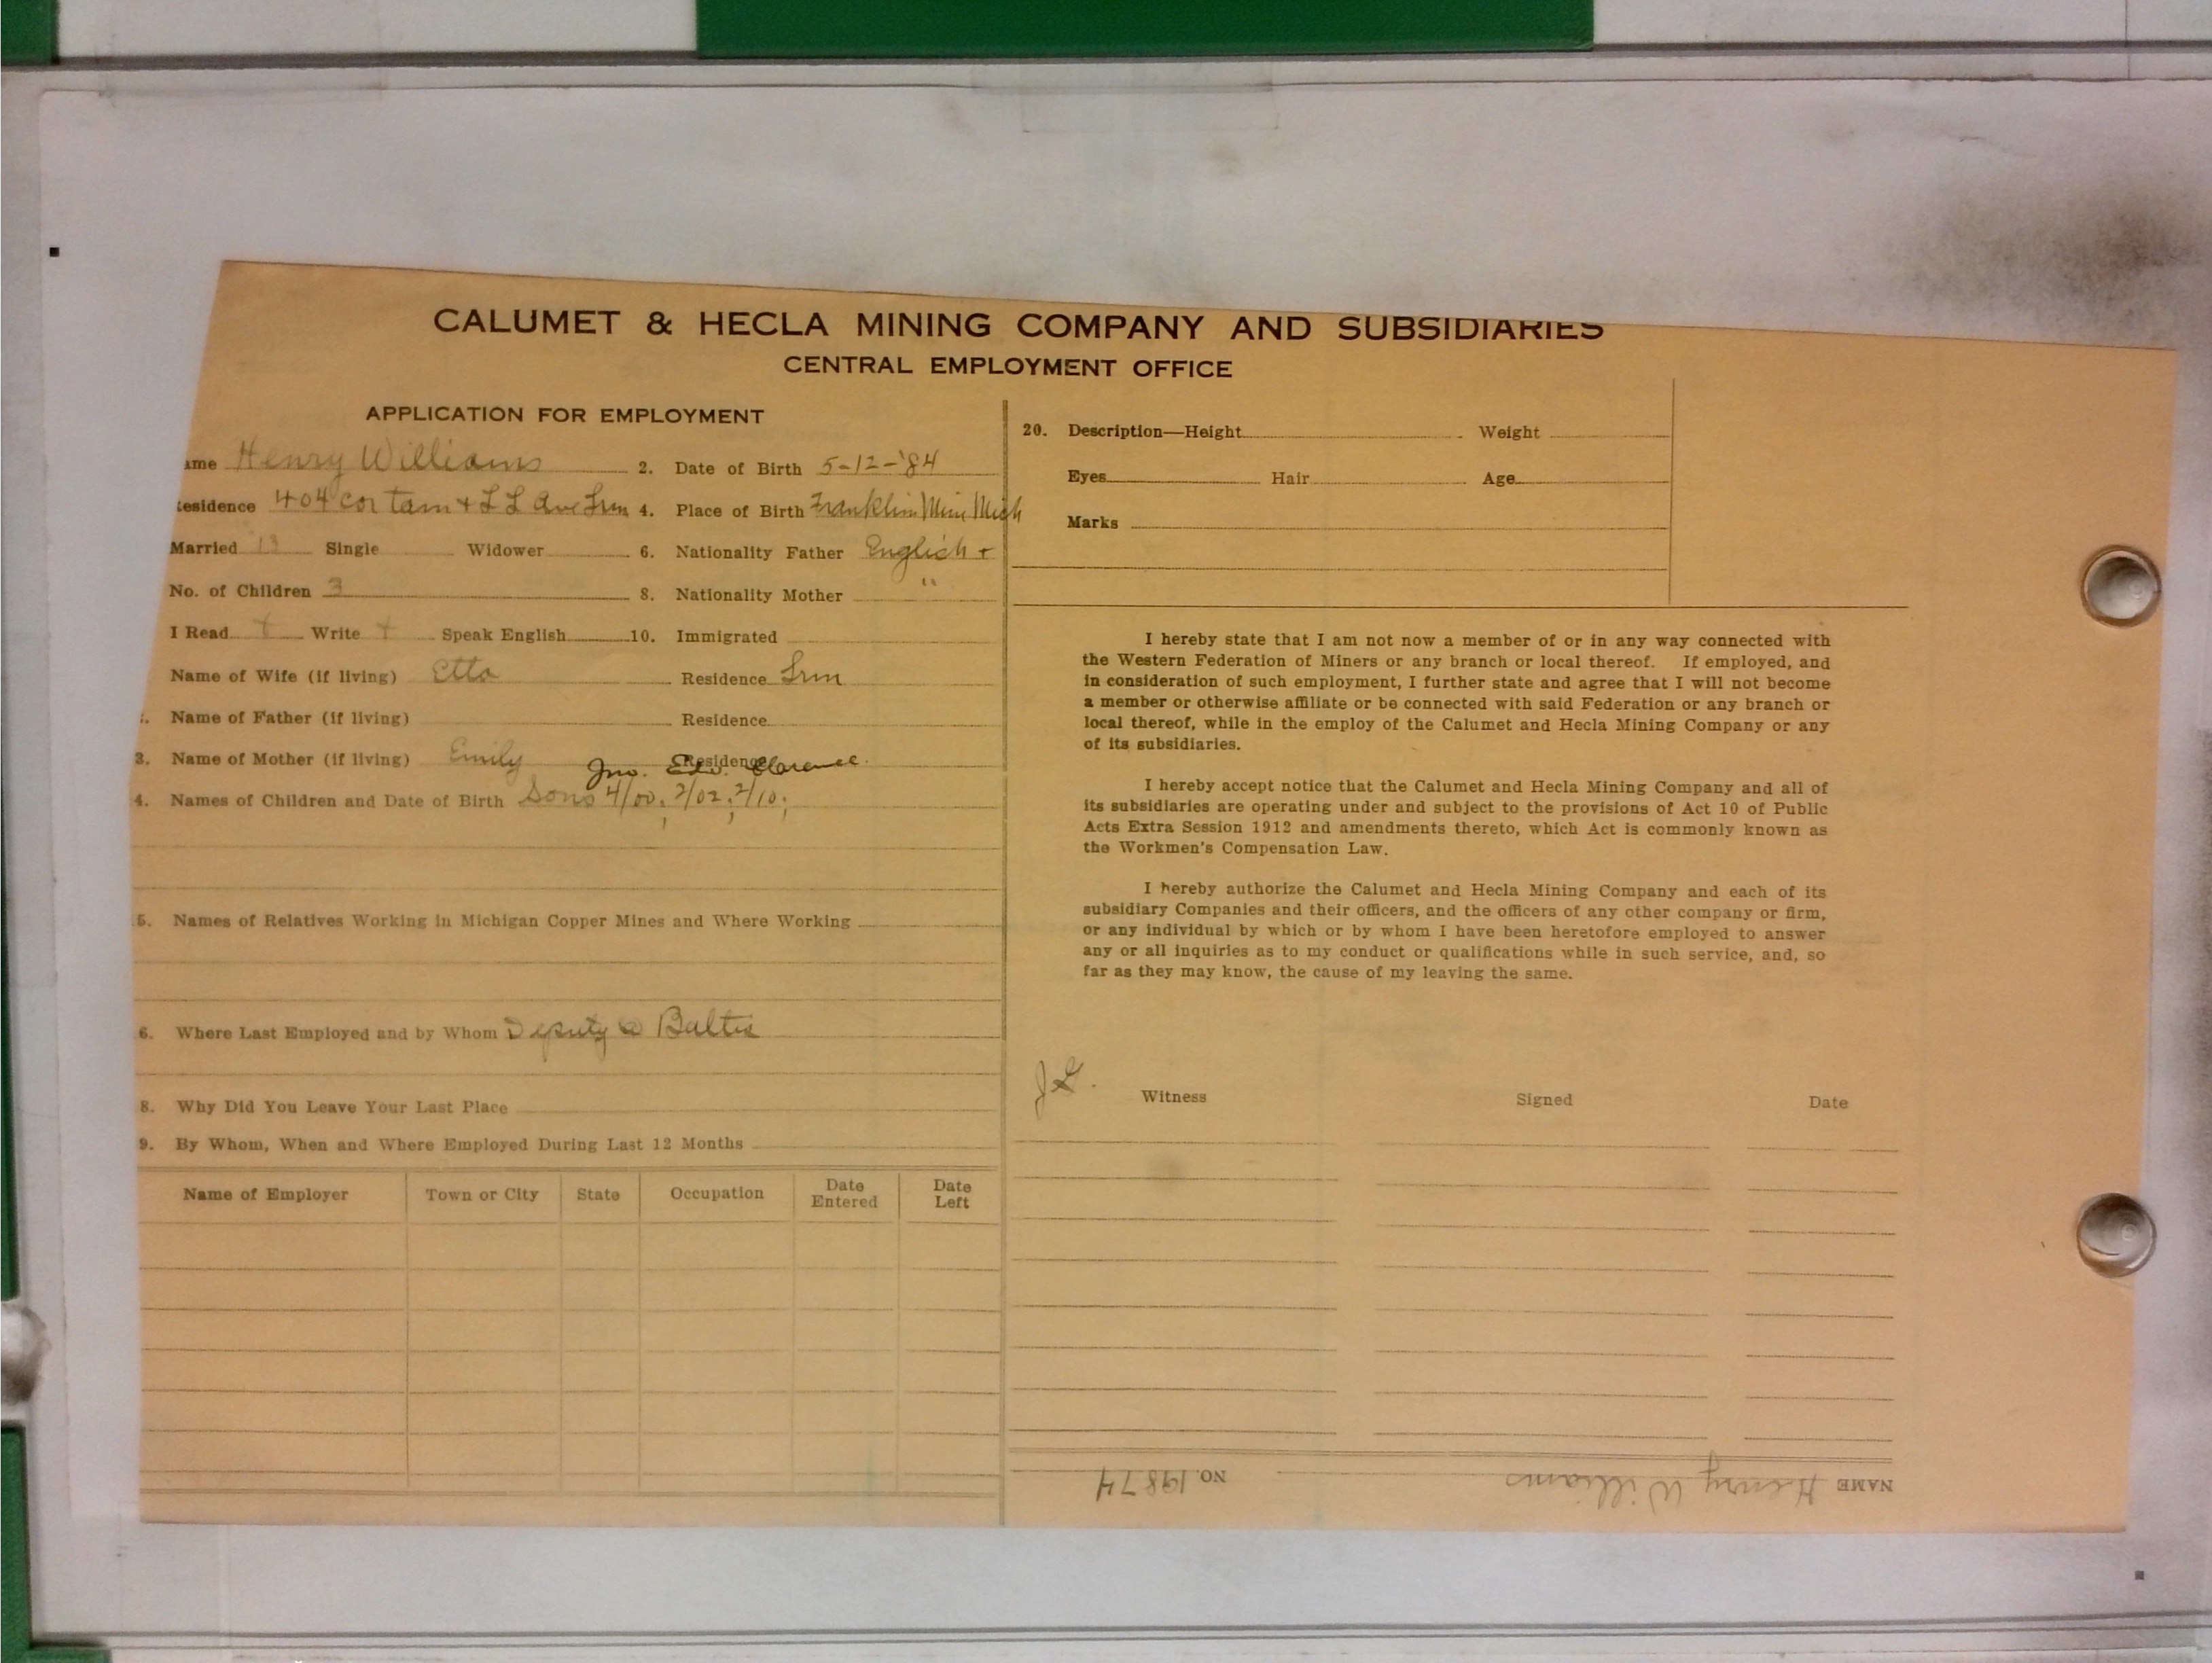 CALUMET & HECLA MINING COMPANY AND SUBSIDIARIES
CENTRAL EMPLOYMENT OFFICE
APPLICATION FOR EMPLOYMENT
ame Henry Williams 2. Date of Birth 5-12-'84
esidence 404 cor tam + L L Ave Lrm 4. Place of Birth Franklin Mine Mich
Married 13 Single Widower 6. Nationality Father English +
No. of Children 3 8. Nationality Mother "
I Read + Write + Speak English 10. Immigrated
Name of Wife (if living) Etta Residence Lrm
Name of Father (if living) Residence
3. Name of Mother (if living) Emily Residence
Jno. Edw. Clarence.
4. Names of Children and Date of Birth Sons 4/00; 2/02; 2/10;
5. Names of Relatives Working in Michigan Copper Mines and Where Working
6. Where Last Employed and by Whom Deputy @ Baltic
8. Why Did You Leave Your Last Place
9. By Whom, When and Where Employed During Last 12 Months
Name of Employer Town or City State Occupation Date Entered Date Left
20. Description—Height Weight
Eyes Hair Age
Marks
I hereby state that I am not now a member of or in any way connected with
the Western Federation of Miners or any branch or local thereof. If employed, and
in consideration of such employment, I further state and agree that I will not become
a member or otherwise affiliate or be connected with said Federation or any branch or
local thereof, while in the employ of the Calumet and Hecla Mining Company or any
of its subsidiaries.
I hereby accept notice that the Calumet and Hecla Mining Company and all of
its subsidiaries are operating under and subject to the provisions of Act 10 of Public
Acts Extra Session 1912 and amendments thereto, which Act is commonly known as
the Workmen's Compensation Law.
I hereby authorize the Calumet and Hecla Mining Company and each of its
subsidiary Companies and their officers, and the officers of any other company or firm,
or any individual by which or by whom I have been heretofore employed to answer
any or all inquiries as to my conduct or qualifications while in such service, and, so
far as they may know, the cause of my leaving the same.
Witness Signed Date
NAME Henry Williams NO. 19874